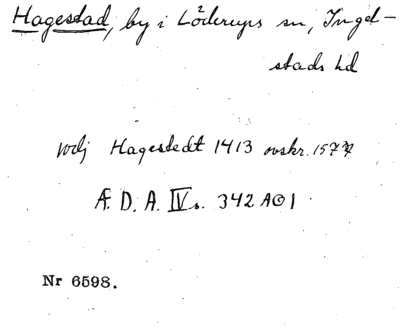 Hagestad, by i Löderups sn, Ingel-
stads hd
Hagestedt 1413 avskr. 157
Æ. D. A. IV s. 342 A01
Nr 6598.